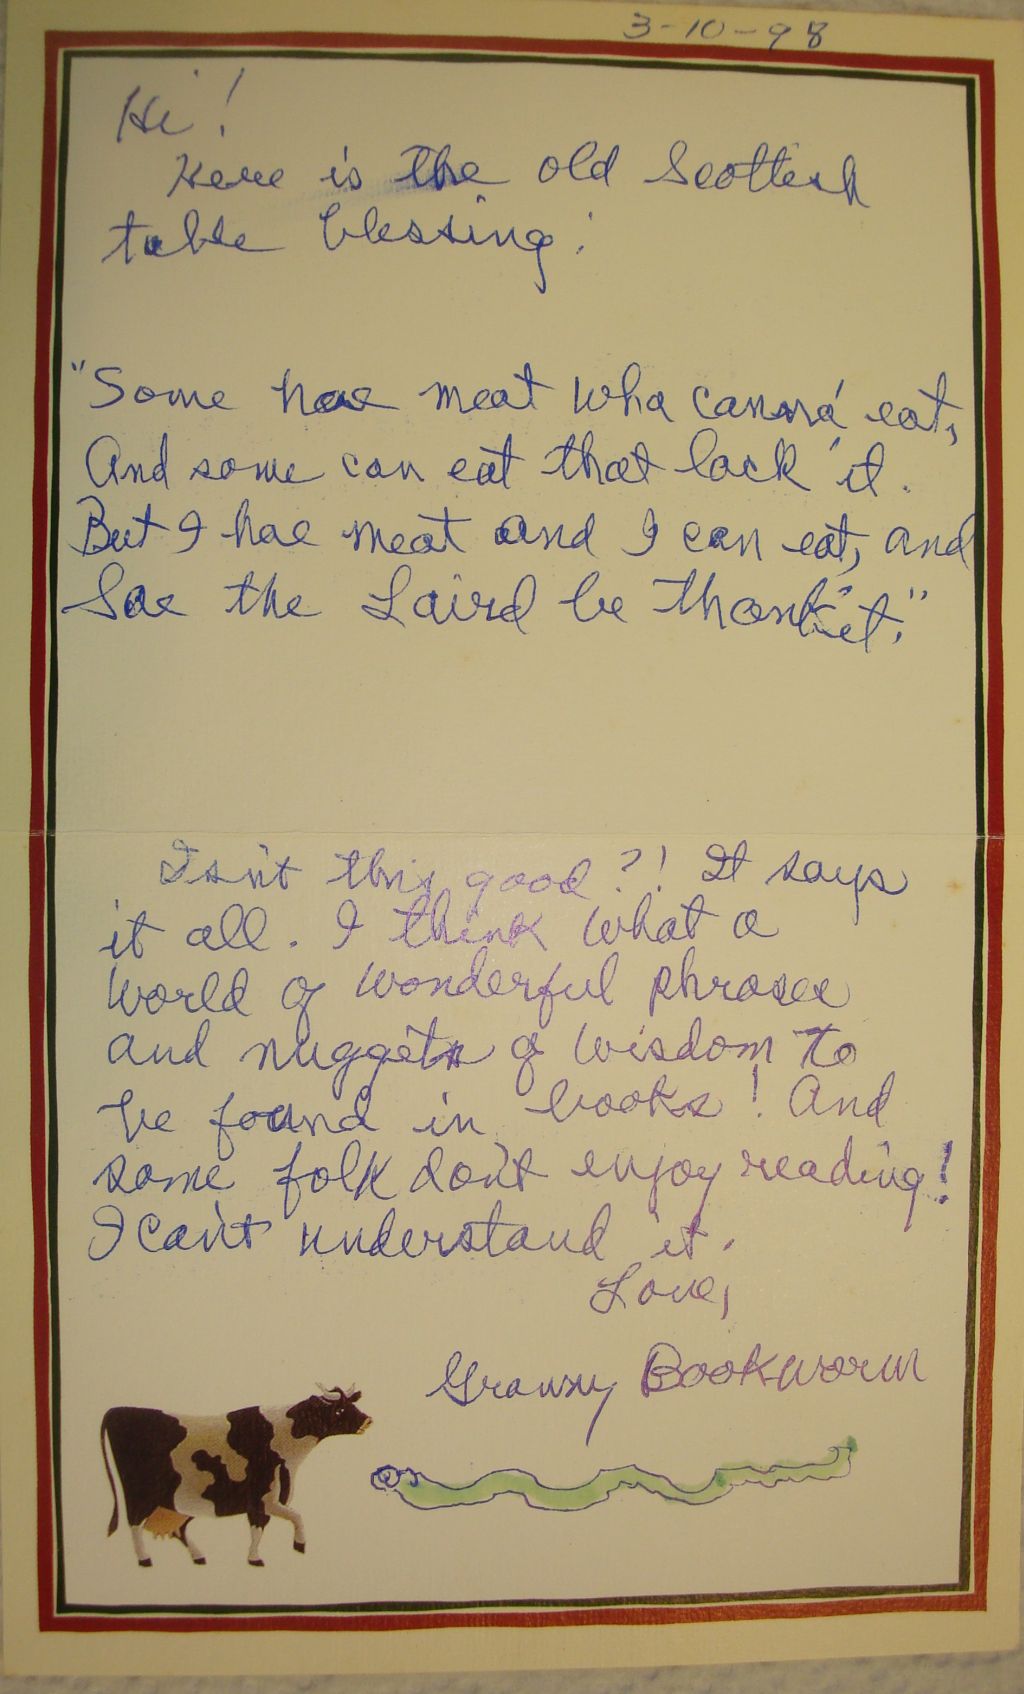 3-10-98
Hi!
Here is the old Scottish
table blessing:
"Some hae meat wha canna' eat,
And some can eat that lack it.
But I hae meat and I can eat, and
Sae the Laird be thankit."
Isn't this good?! It says
it all. I think what a
world of wonderful phrases
and nuggets of wisdom to
be found in books! And
some folk don't enjoy reading!
I can't understand it.
Love,
Granny Bookworm